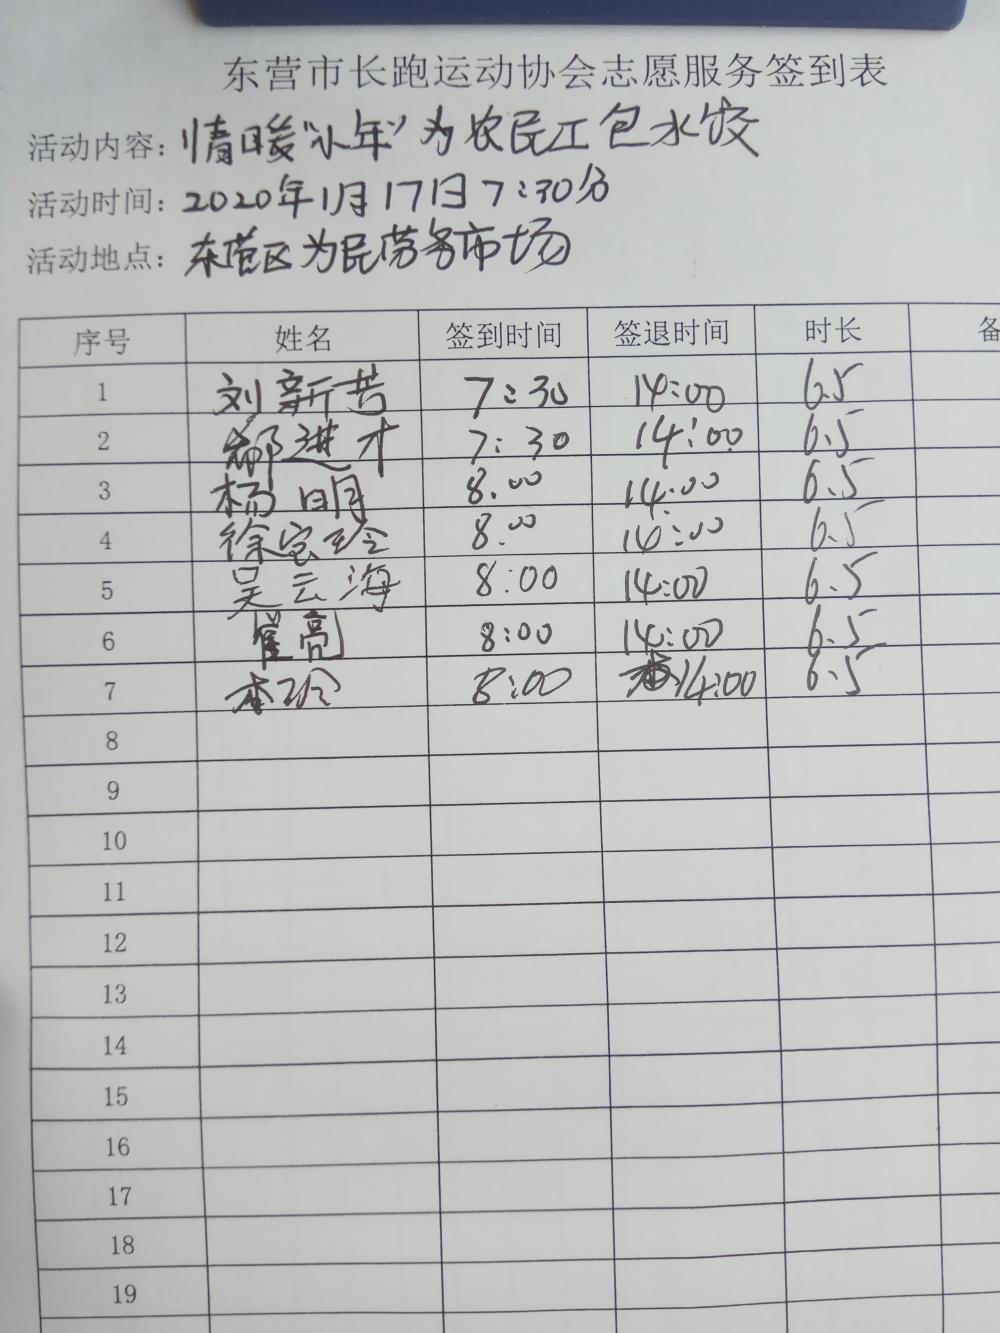 东营市长跑运动协会志愿服务签到表
活动内容：情暖“小年”为农民工包水饺
活动时间：2020年1月17日7:30分
活动地点：东营区为民劳务市场
序号 姓名 签到时间 签退时间 时长 备
1 刘新芳 7:30 14:00 6.5
2 郝进才 7:30 14:00 6.5
3 杨明 8:00 14:00 6.5
4 徐宝玲 8:00 14:00 6.5
5 吴云海 8:00 14:00 6.5
6 崔亮 8:00 14:00 6.5
7 李玲 8:00 14:00 6.5
8
9
10
11
12
13
14
15
16
17
18
19